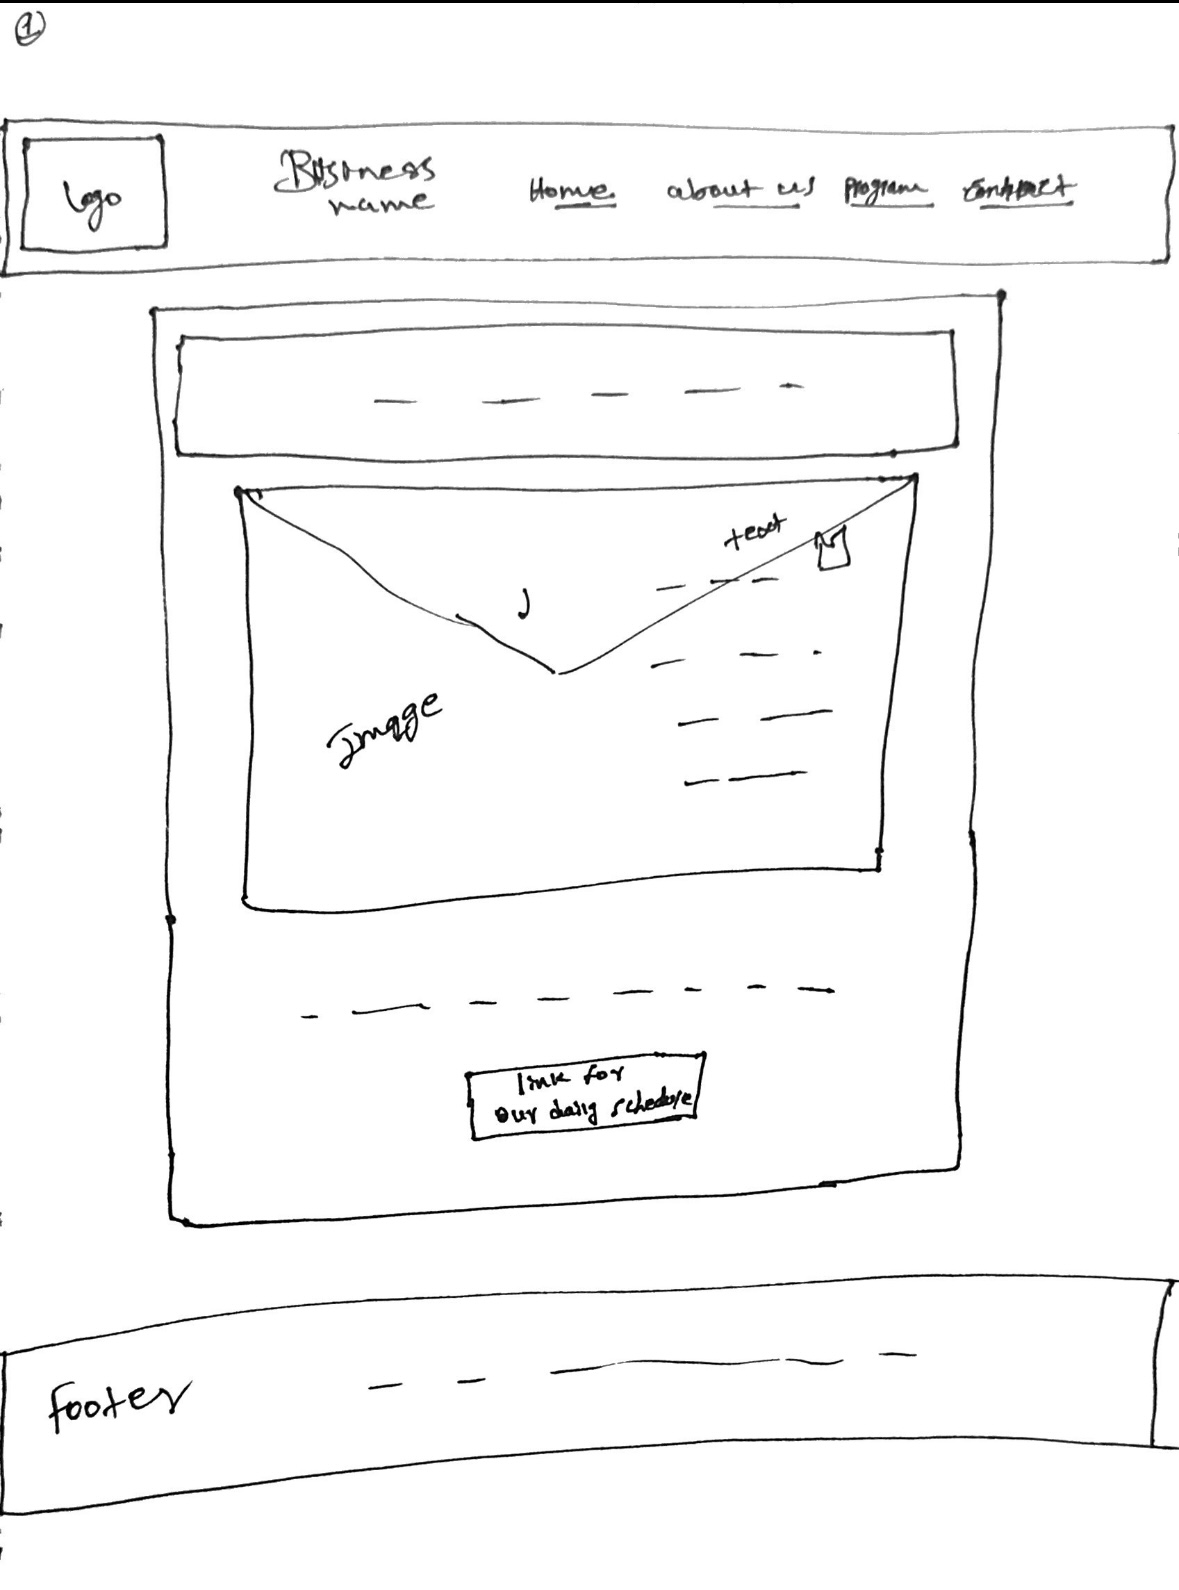 1
Logo
Business
name
Home about us Program Contact
text
Image
link for
our daily schedule
Footer